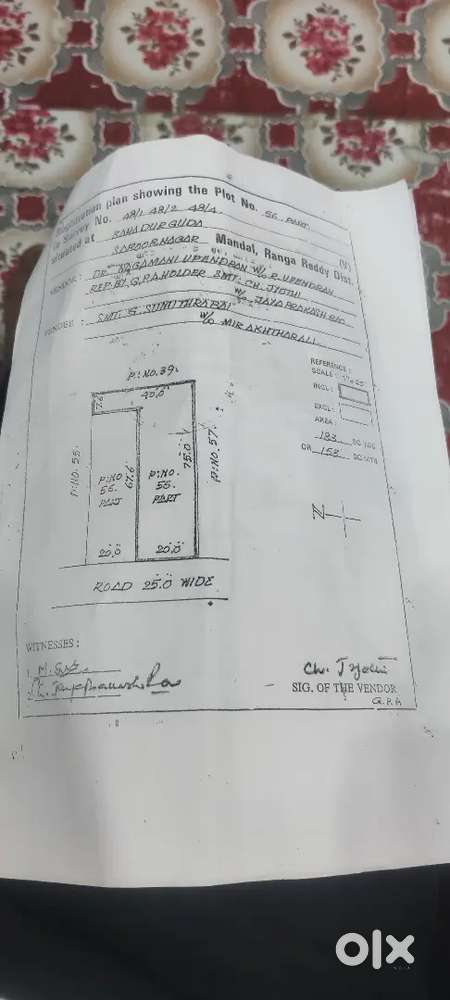 Registration plan showing the Plot No. 56. PART
in Survey No. 48/1 48/2 48/4
situated at SAHADURGUDA (V)
SAROORNAGAR Mandal, Ranga Reddy Dist.
VENDOR : DR. NAGAMANI UPENDRAN W/o R. UPENDRAN
REP. BY. G.P.A. HOLDER SMT. CH. JYOTHI
W/o JAYA PRAKASH RAO
VENDEE : SMT. S. SUNITHRABAI
W/o MIR AKHTHAR ALI
REFERENCE :
SCALE :
INCL :
EXCL :
AREA :
183 SQ YDS
OR 153 SQ MTR
P: NO. 39.
40.0
7.6
P: NO. 55.
P: NO
56.
PART
67.6
P: NO.
56.
PART
75.0
P: NO. 57.
20.0
20.0
N
ROAD 25.0 WIDE
WITNESSES :
1
Ch. Jyothi
SIG. OF THE VENDOR
G.P.A
olx
INDIA